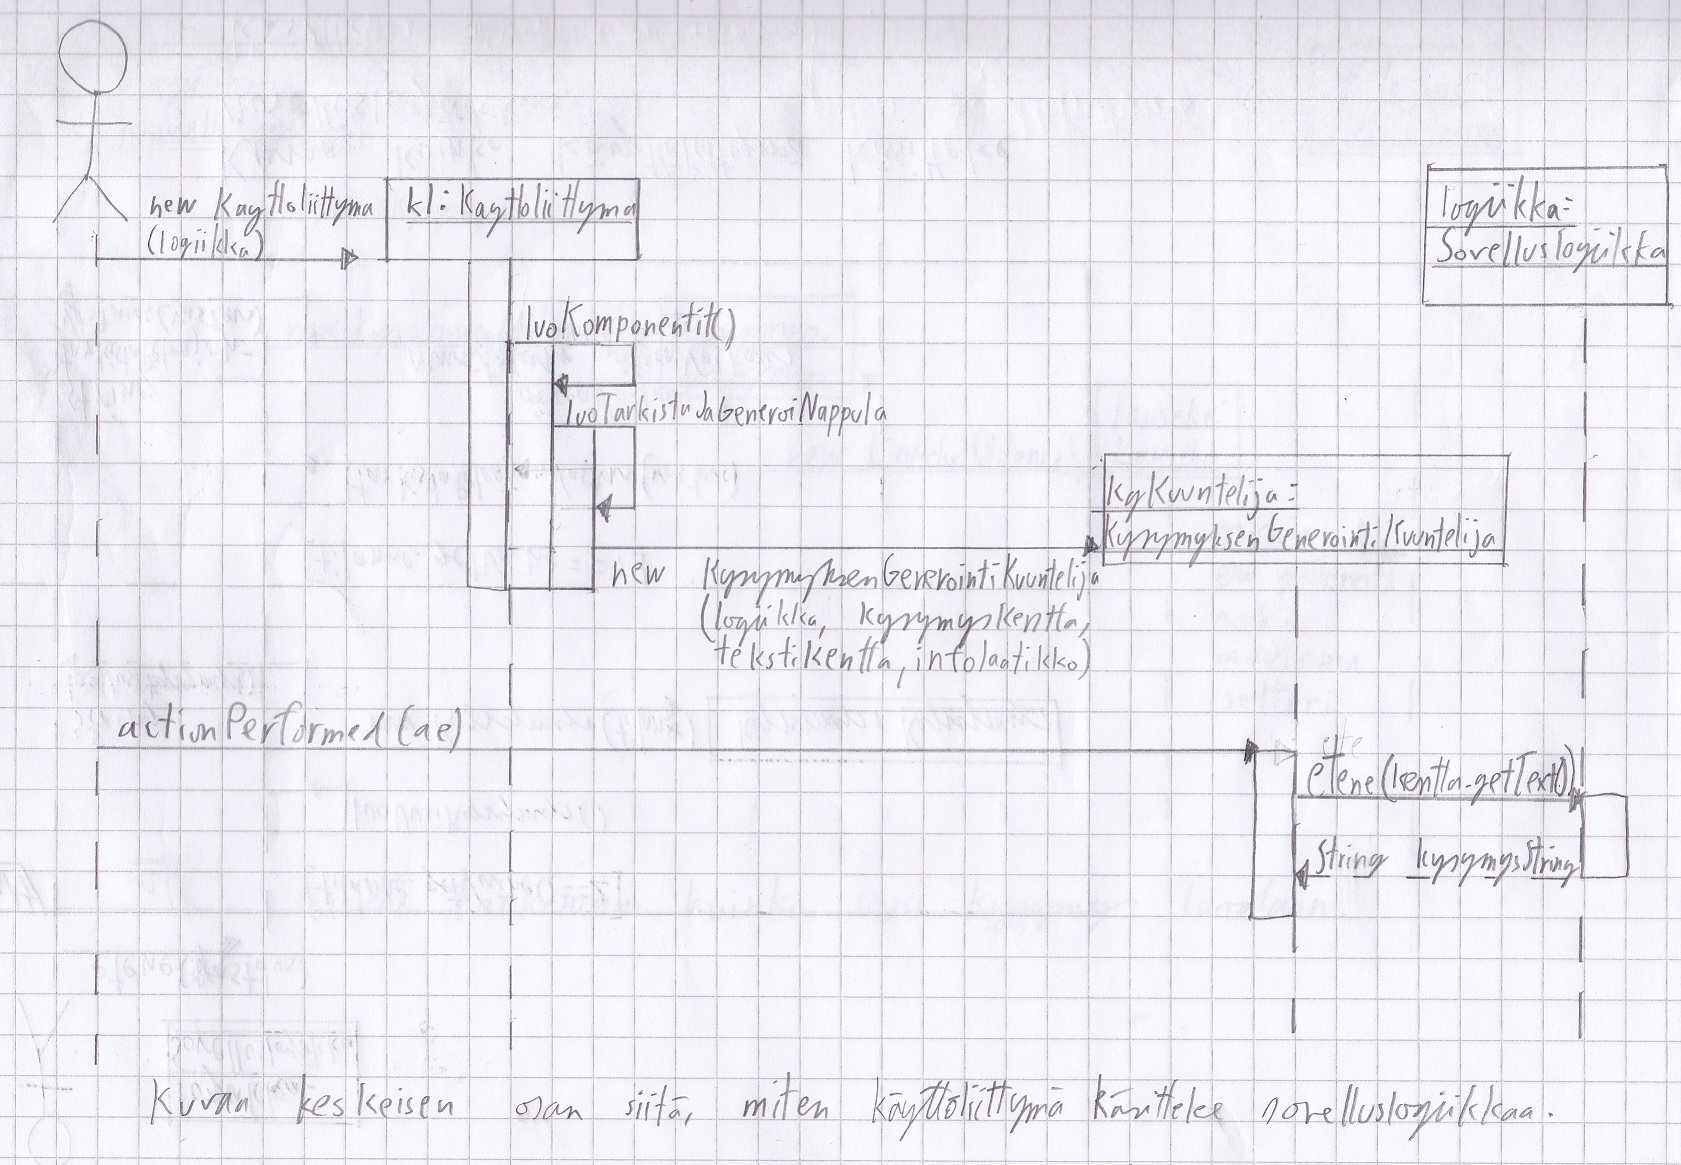 new Kayttoliittyma
(logiikka)
kl: Kayttoliittyma
logiikka:
Sovelluslogiikka
luoKomponentit()
luoTarkistuJaGeneroiNappula
kgKuuntelija:
KysymyksenGenerointiKuuntelija
new KysymyksenGenerointiKuuntelija
(logiikka, kysymyskentta,
tekstikentta, infolaatikko)
actionPerformed(ae)
etene(kentta.getText())
String kysymysString
Kuvaa keskeisen osan siitä, miten käyttöliittymä käsittelee sovelluslogiikkaa.